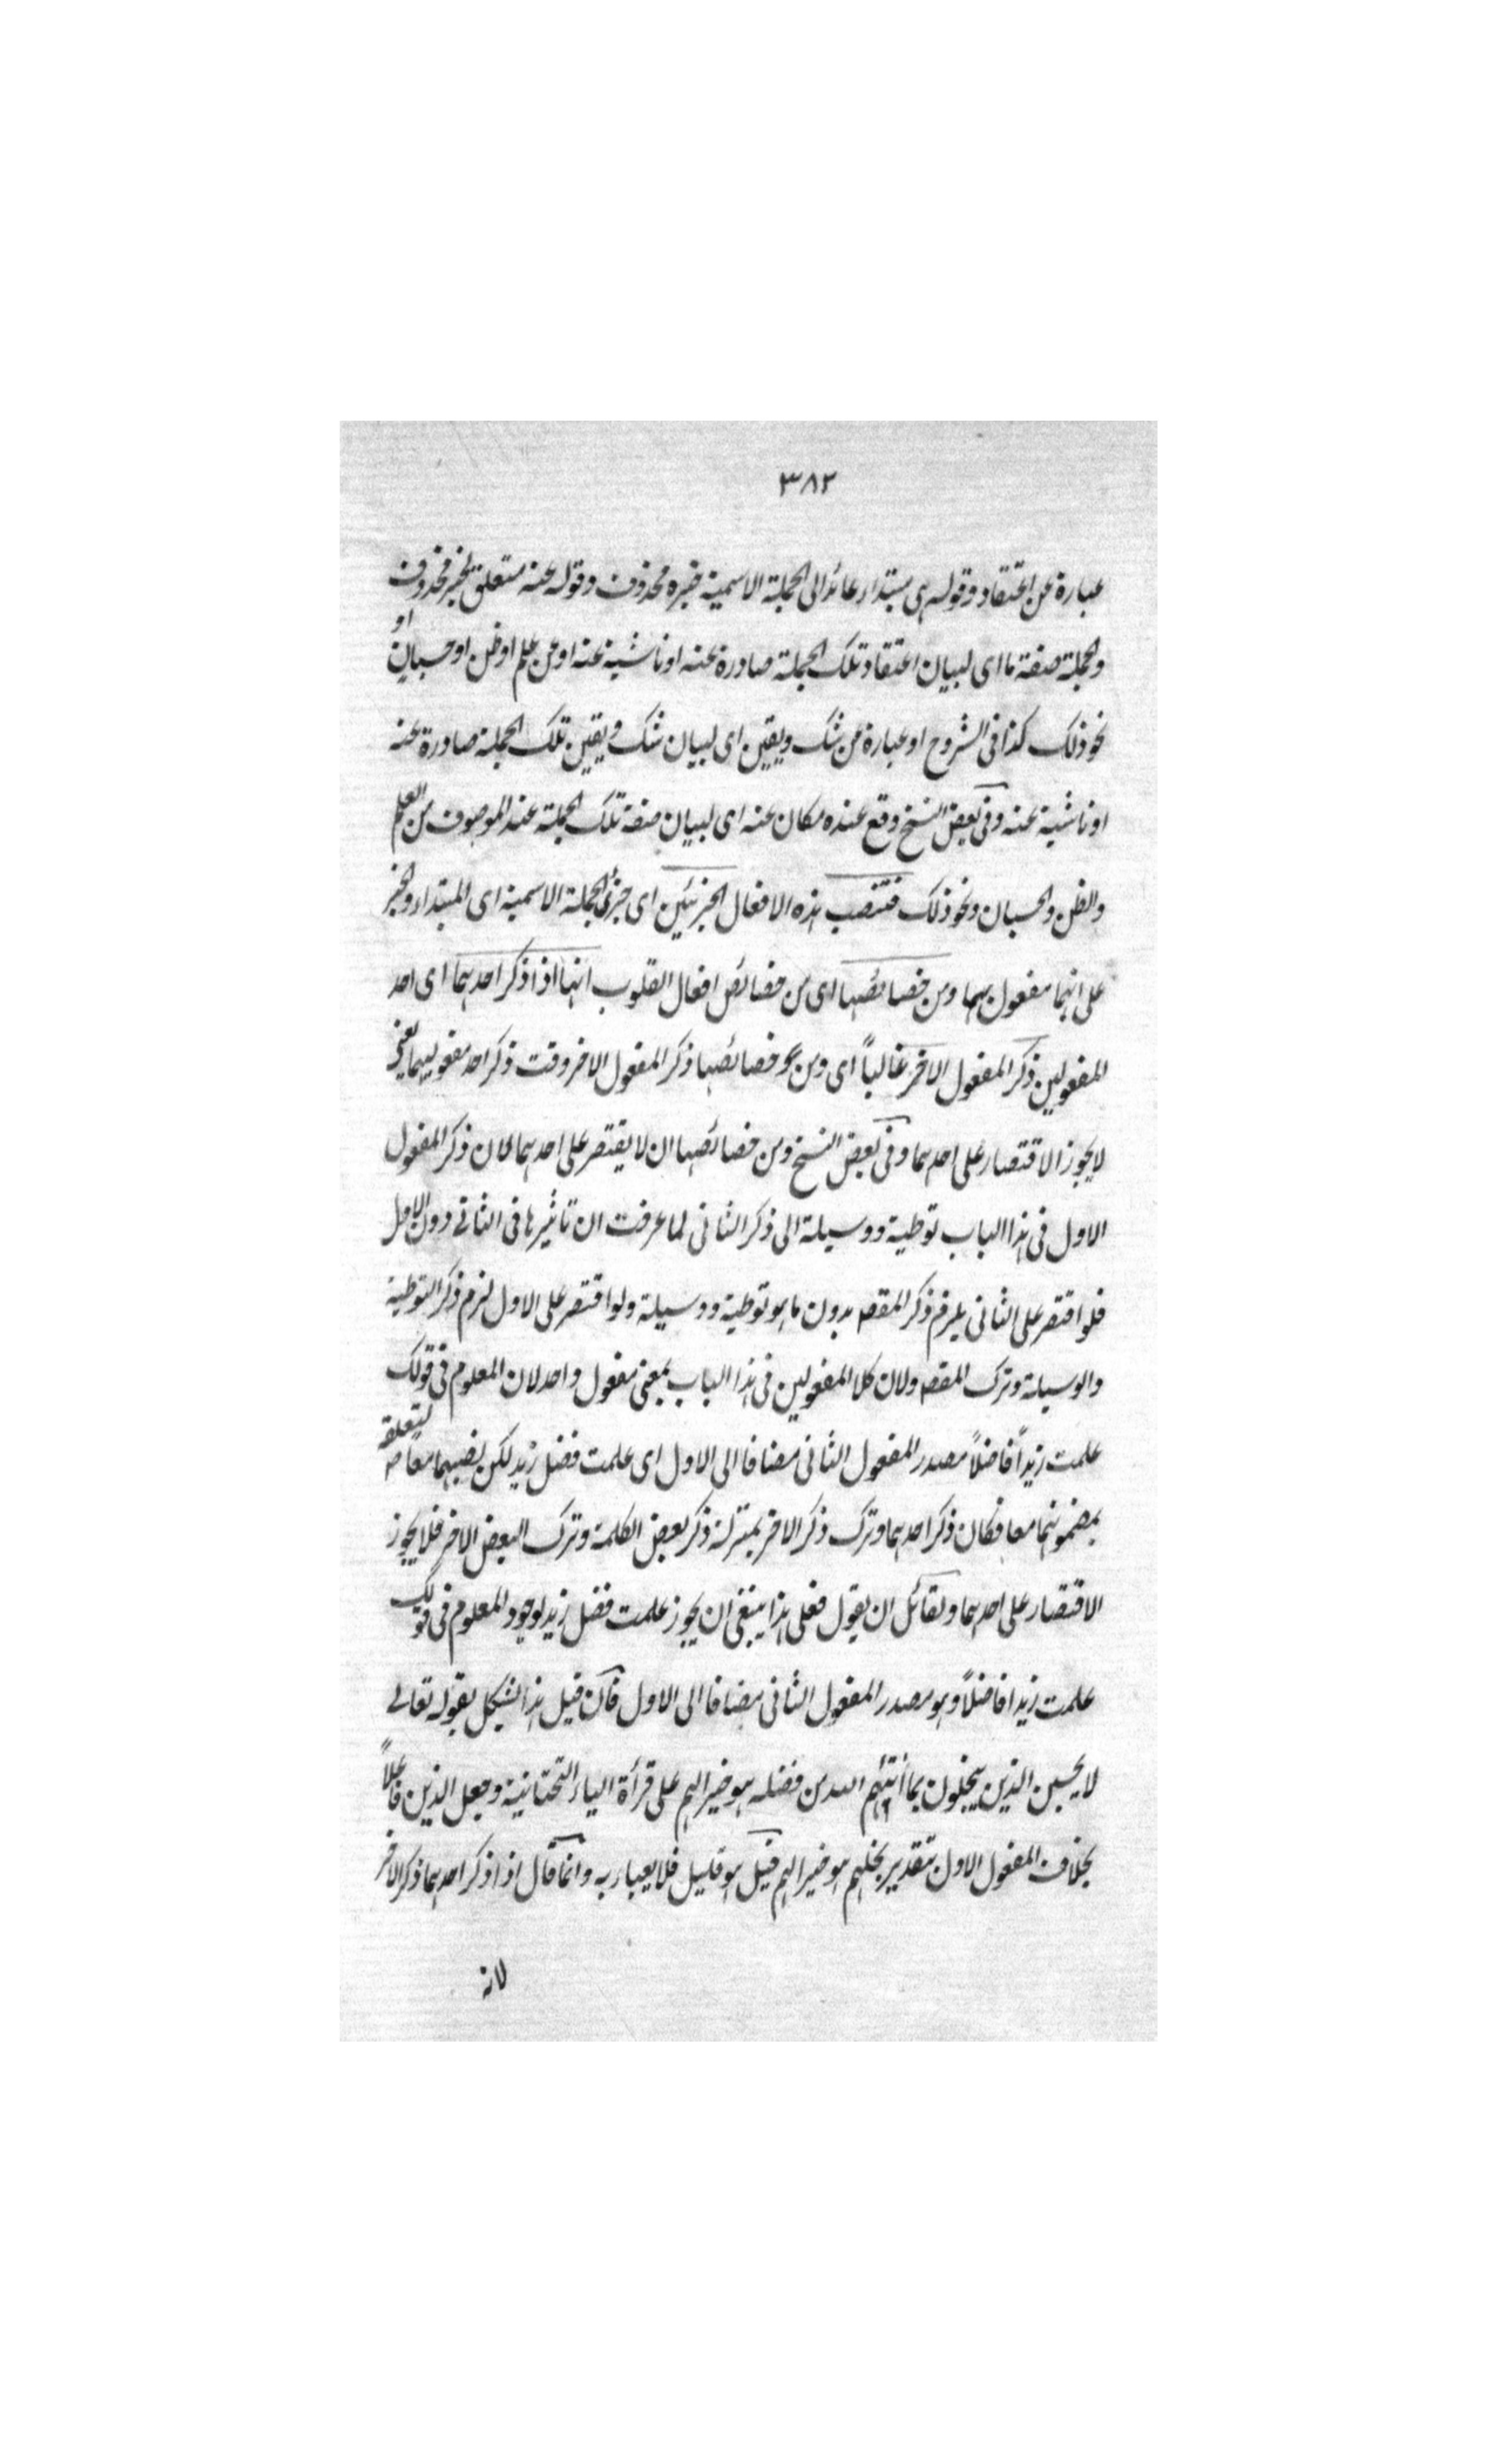 ٣٨٢
عبارة عن اعتقاد وقوله هي مبتداء عائد الى الجملة الاسمية خبره محذوف وقوله عنه متعلق بخبر محذوف
والجملة صفة ما اى لبيان اعتقاد تلك الجملة صادرة عنه او ناشية عنه او عن علم او ظن او حسبان او
نحو ذلك كذا فى الشروح او عبارة عن شك ويقين اى لبيان شك ويقين تلك الجملة صادرة عنه
او ناشية عنه وفى بعض النسخ وقع عنده مكان عنه اى لبيان صفة تلك الجملة عند الموصوف من العلم
والظن والحسبان ونحو ذلك فتنصب هذه الافعال الجزئين اى جزئى الجملة الاسمية اى المبتداء والخبر
على انهما مفعول بهما ومن خصائصها اى من خصائص افعال القلوب انها اذا ذكر احدهما اى احد
المفعولين ذكر المفعول الاخر غالباً اى ومن خصائصها ذكر المفعول الاخر وقت ذكر احد مفعوليهما يعنى
لا يجوز الاقتصار على احدهما وفى بعض النسخ ومن خصائصها ان لا يقتصر على احدهما لان ذكر المفعول
الاول فى هذا الباب توطية ووسيلة الى ذكر الثانى لما عرفت ان تاثيرها فى الثانى دون الاول
فلو اقتصر على الثانى يلزم ذكر المقصه بدون ما هو توطية ووسيلة ولو اقتصر على الاول لزم ذكر التوطية
والوسيلة وترك المقصه ولان كلا المفعولين فى هذا الباب بمعنى مفعول واحد لان المعلوم فى قولك
علمت زيداً فاضلاً مصدر المفعول الثانى مضافا الى الاول اى علمت فضل زيد لكن نصبهما معاً لتعلقه
بمضمونهما معا فكان ذكر احدهما وترك ذكر الاخر بمنزلة ذكر بعض الكلمة وترك البعض الاخر فلا يجوز
الاقتصار على احدهما ولقائل ان يقول فعلى هذا ينبغى ان يجوز علمت فضل زيد لوجود المعلوم فى قولك
علمت زيدا فاضلاً وهو مصدر المفعول الثانى مضافا الى الاول فان قيل هذا يشكل بقوله تعالى
لا يحسبن الذين يبخلون بما أتٰهم الله من فضله هو خيرا لهم على قرأة الياء التحتانية وجعل الذين فاعلاً
بخلاف المفعول الاول بتقدير بخلهم هو خيرا لهم قيل هو قليل فلا يعباء به وانما قال اذا ذكر احدهما ذكر الاخر
لانه